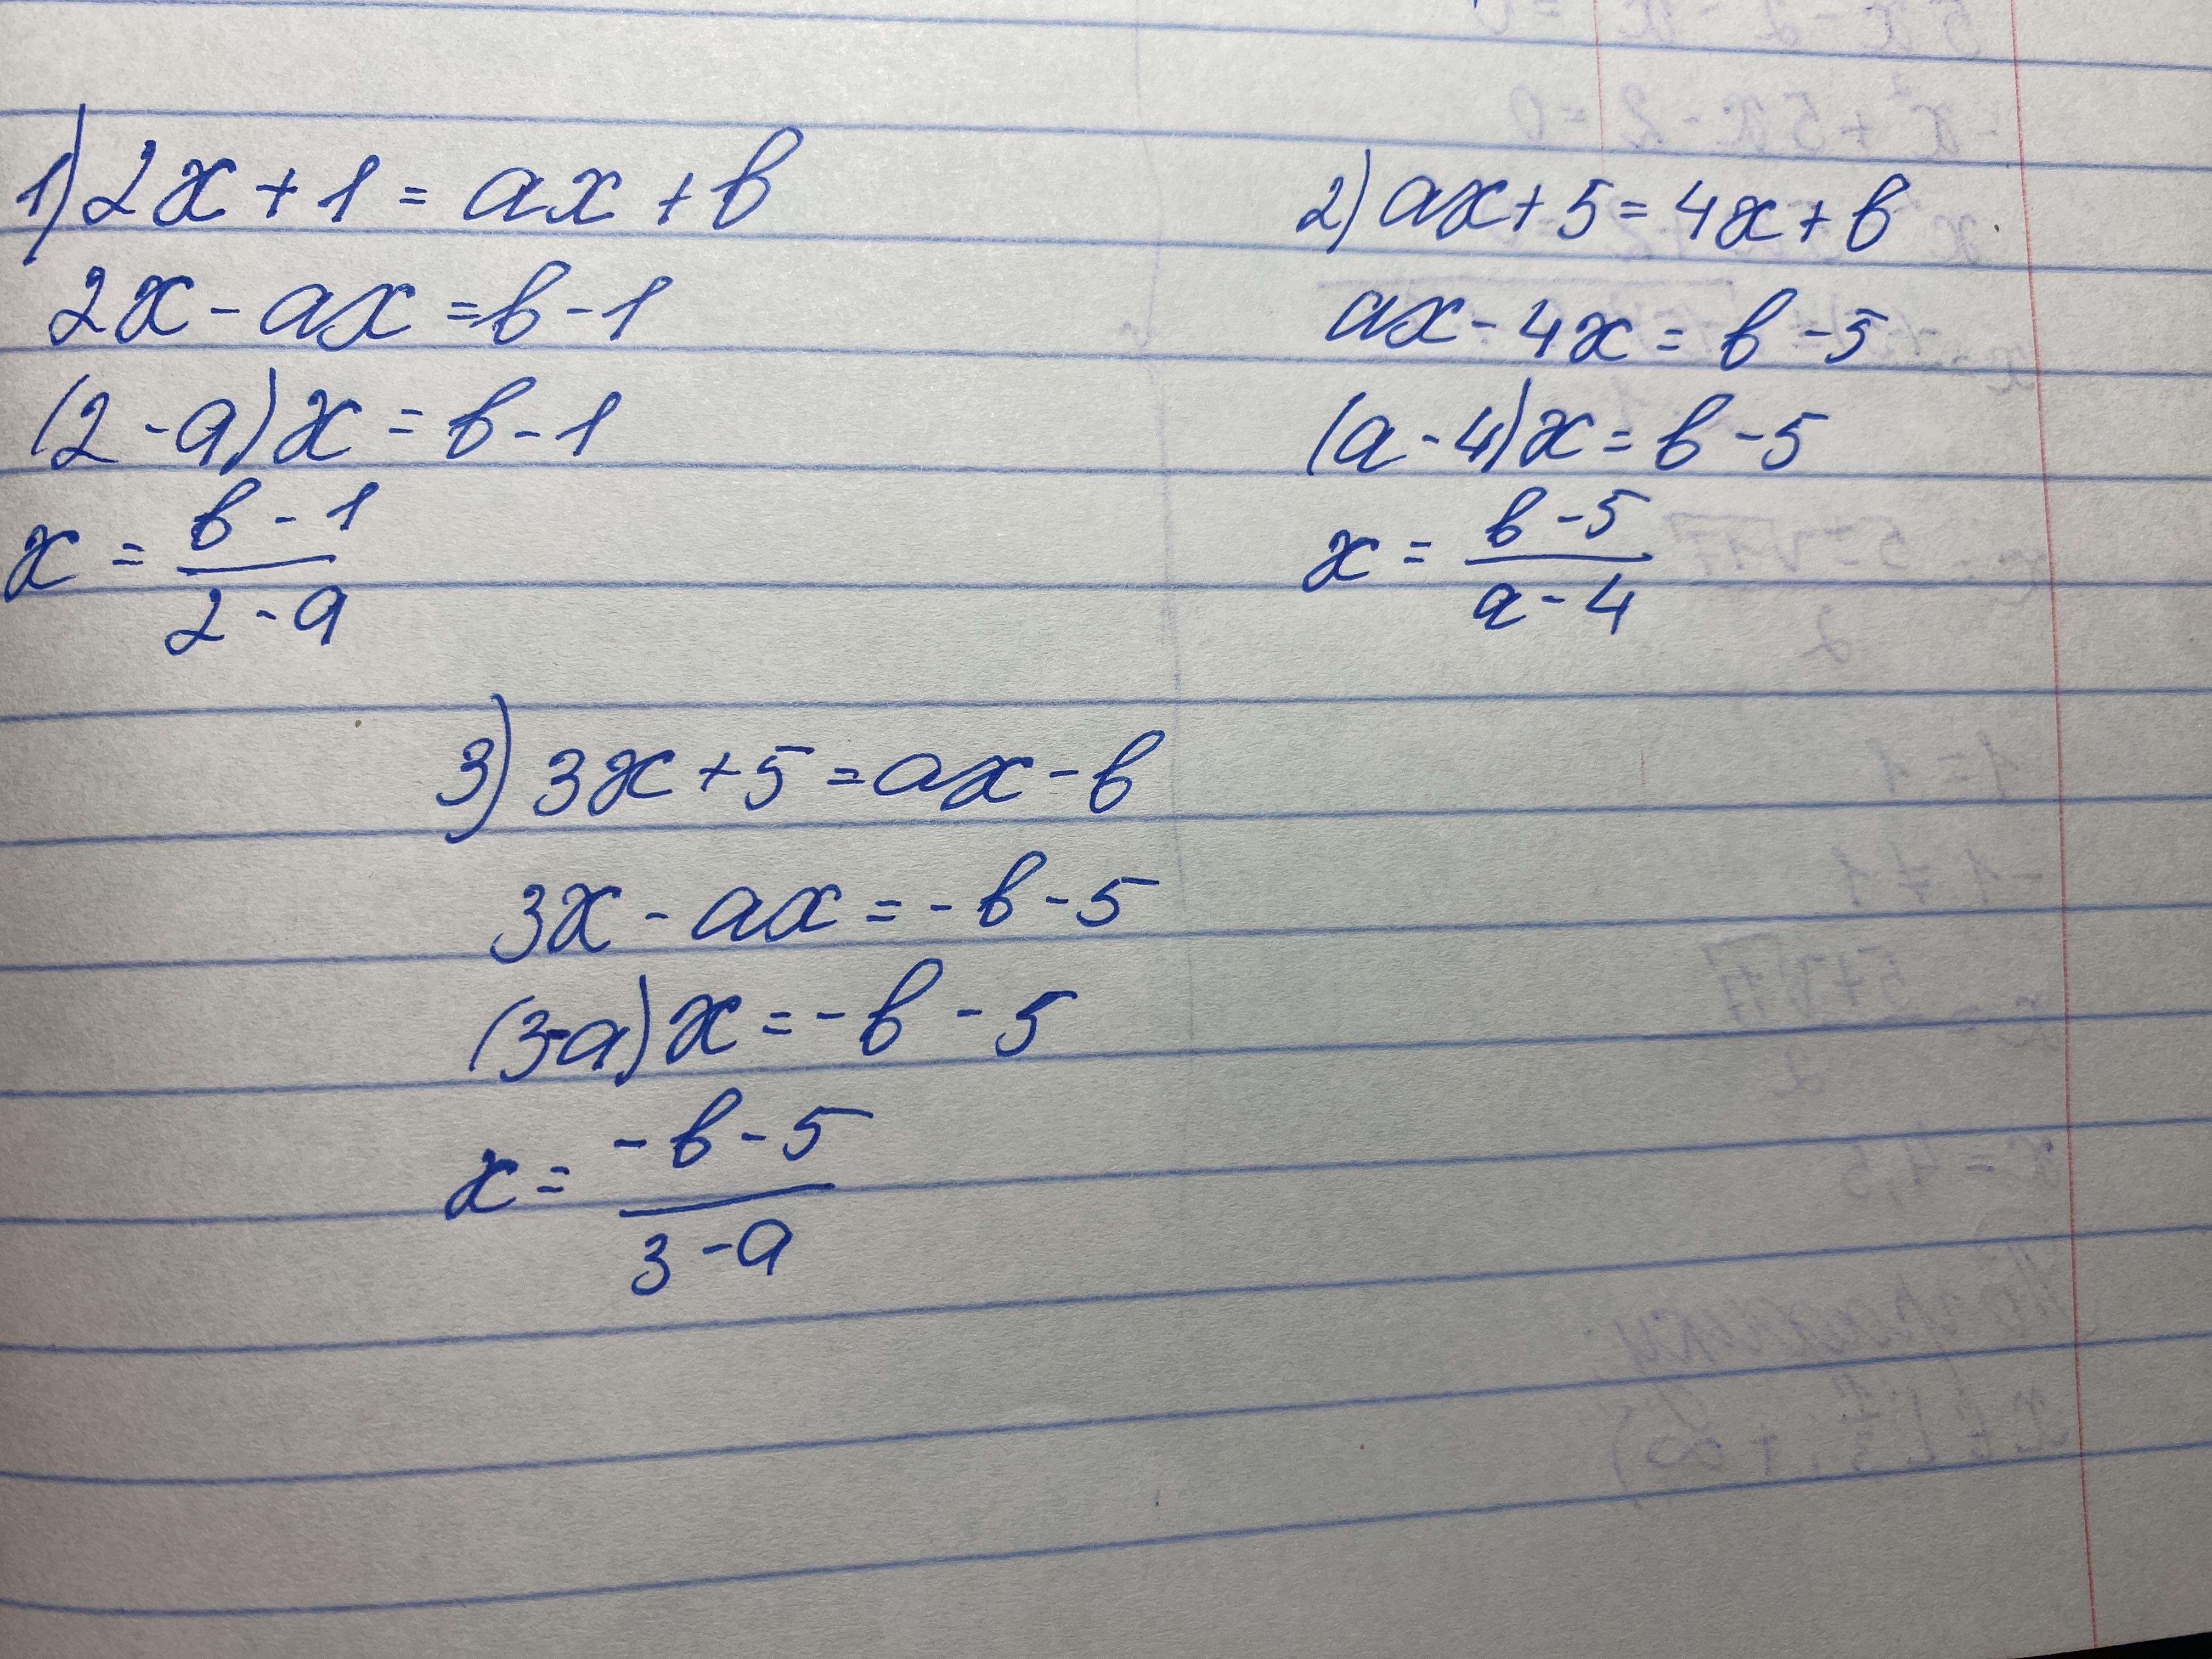 1) 2x + 1 = ax + b
2x - ax = b - 1
(2 - a)x = b - 1
x = \frac{b - 1}{2 - a}
2) ax + 5 = 4x + b
ax - 4x = b - 5
(a - 4)x = b - 5
x = \frac{b - 5}{a - 4}
3) 3x + 5 = ax - b
3x - ax = -b - 5
(3-a)x = -b - 5
x = \frac{-b - 5}{3 - a}